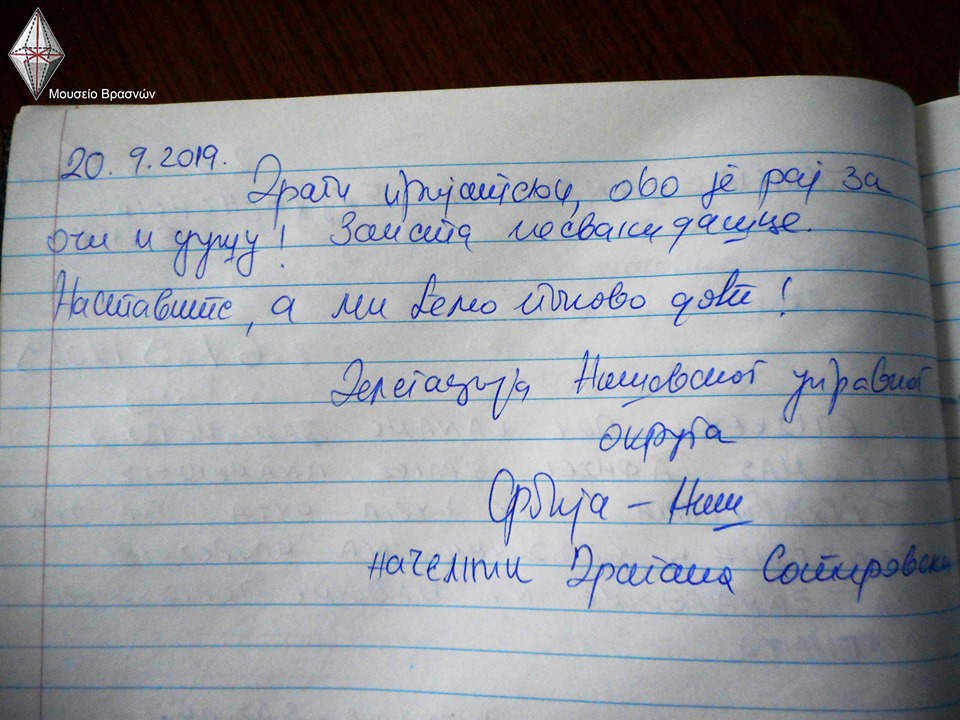 Μουσείο Βρασνών
20. 9. 2019.
Драги пријатељи, ово је рај за
очи и душу! Заиста несвакидашње.
Наставите, а ми ћемо поново доћи!
Делегација Нишавског управног
округа
Србија – Ниш
начелник Драгана Сотировски